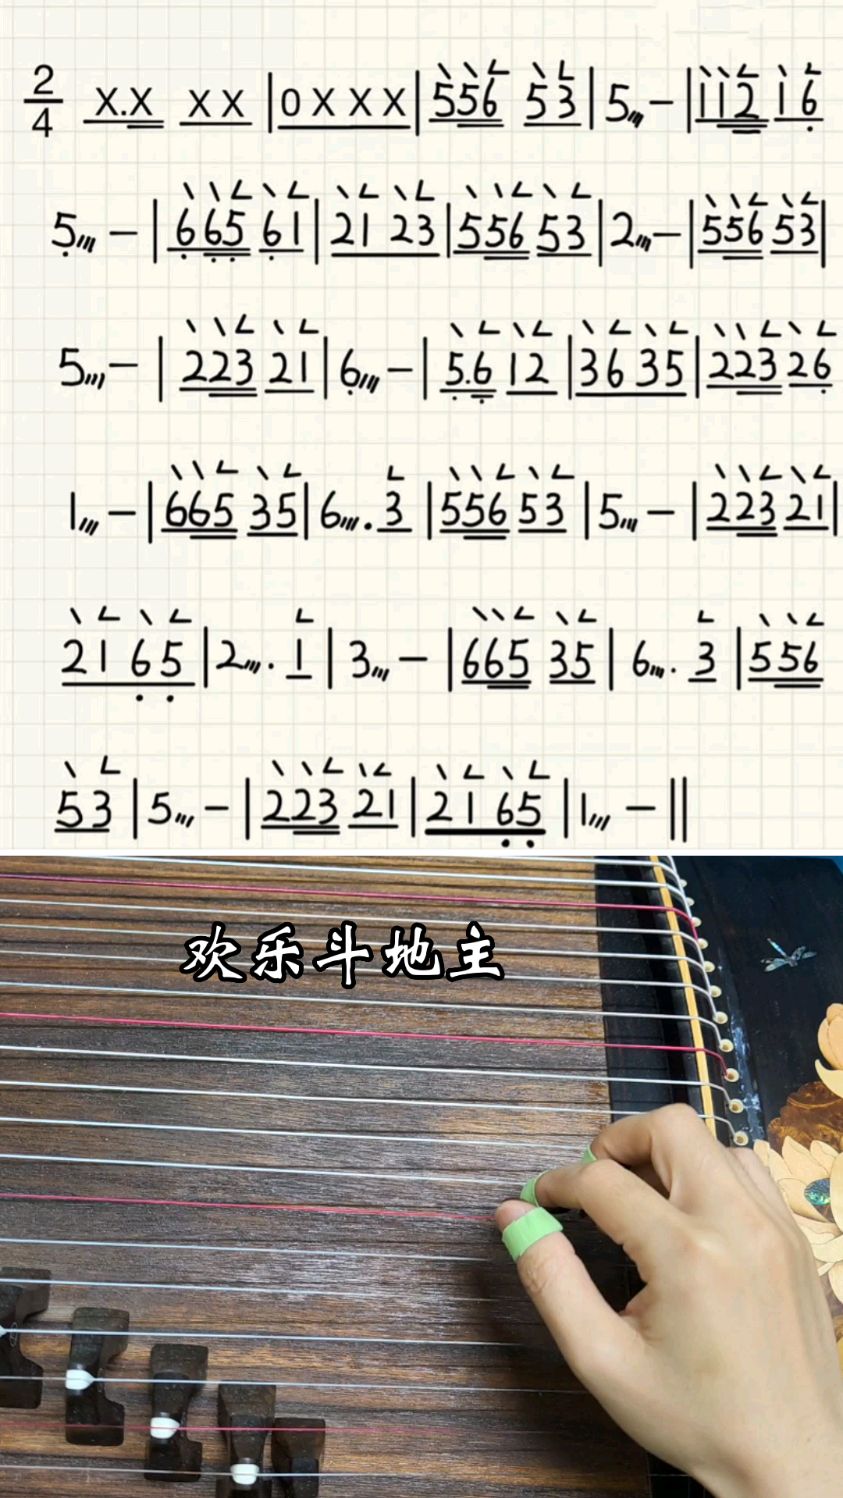 2/4 X.X X X | 0 X X X | 556 53 | 5 - | 112 16
5 - | 665 61 | 21 23 | 556 53 | 2 - | 556 53 |
5 - | 223 21 | 6 - | 5.6 12 | 36 35 | 223 26
1 - | 665 35 | 6 . 3 | 556 53 | 5 - | 223 21 |
21 65 | 2 . 1 | 3 - | 665 35 | 6 . 3 | 556
53 | 5 - | 223 21 | 21 65 | 1 - ||
欢乐斗地主